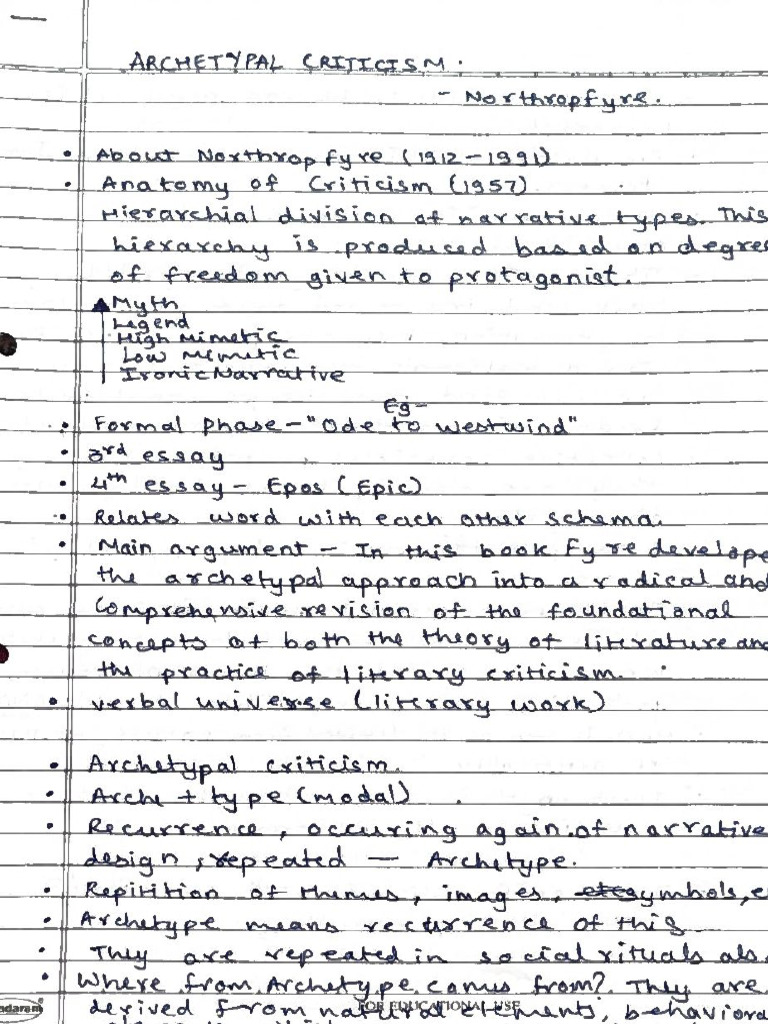 ARCHETYPAL CRITICISM.
- Northropfyre.
• About Northrop fyre (1912-1991)
• Anatomy of Criticism (1957)
Hierarchial division of narrative types. This
hierarchy is produced based on degree
of freedom given to protagonist.
Myth
Legend
High Mimetic
Low Mimetic
Ironic Narrative
Eg-
• Formal phase - "Ode to westwind"
• 3rd essay
• 4th essay - Epos (Epic)
• Relates word with each other schema.
• Main argument - In this book Fyre develope
the archetypal approach into a radical and
comprehensive revision of the foundational
concepts of both the theory of literature and
the practice of literary criticism.
• verbal universe (literary work)
• Archetypal criticism.
• Arche + type (modal)
• Recurrence, occuring again of narrative
design, repeated — Archetype.
• Repitition of themes, images, symbols, e
• Archetype means recurrence of this
• They are repeated in social rituals als
• Where from Archetype comes from? They are
derived from natural elements, behaviora
ndaram
FOR EDUCATIONAL USE